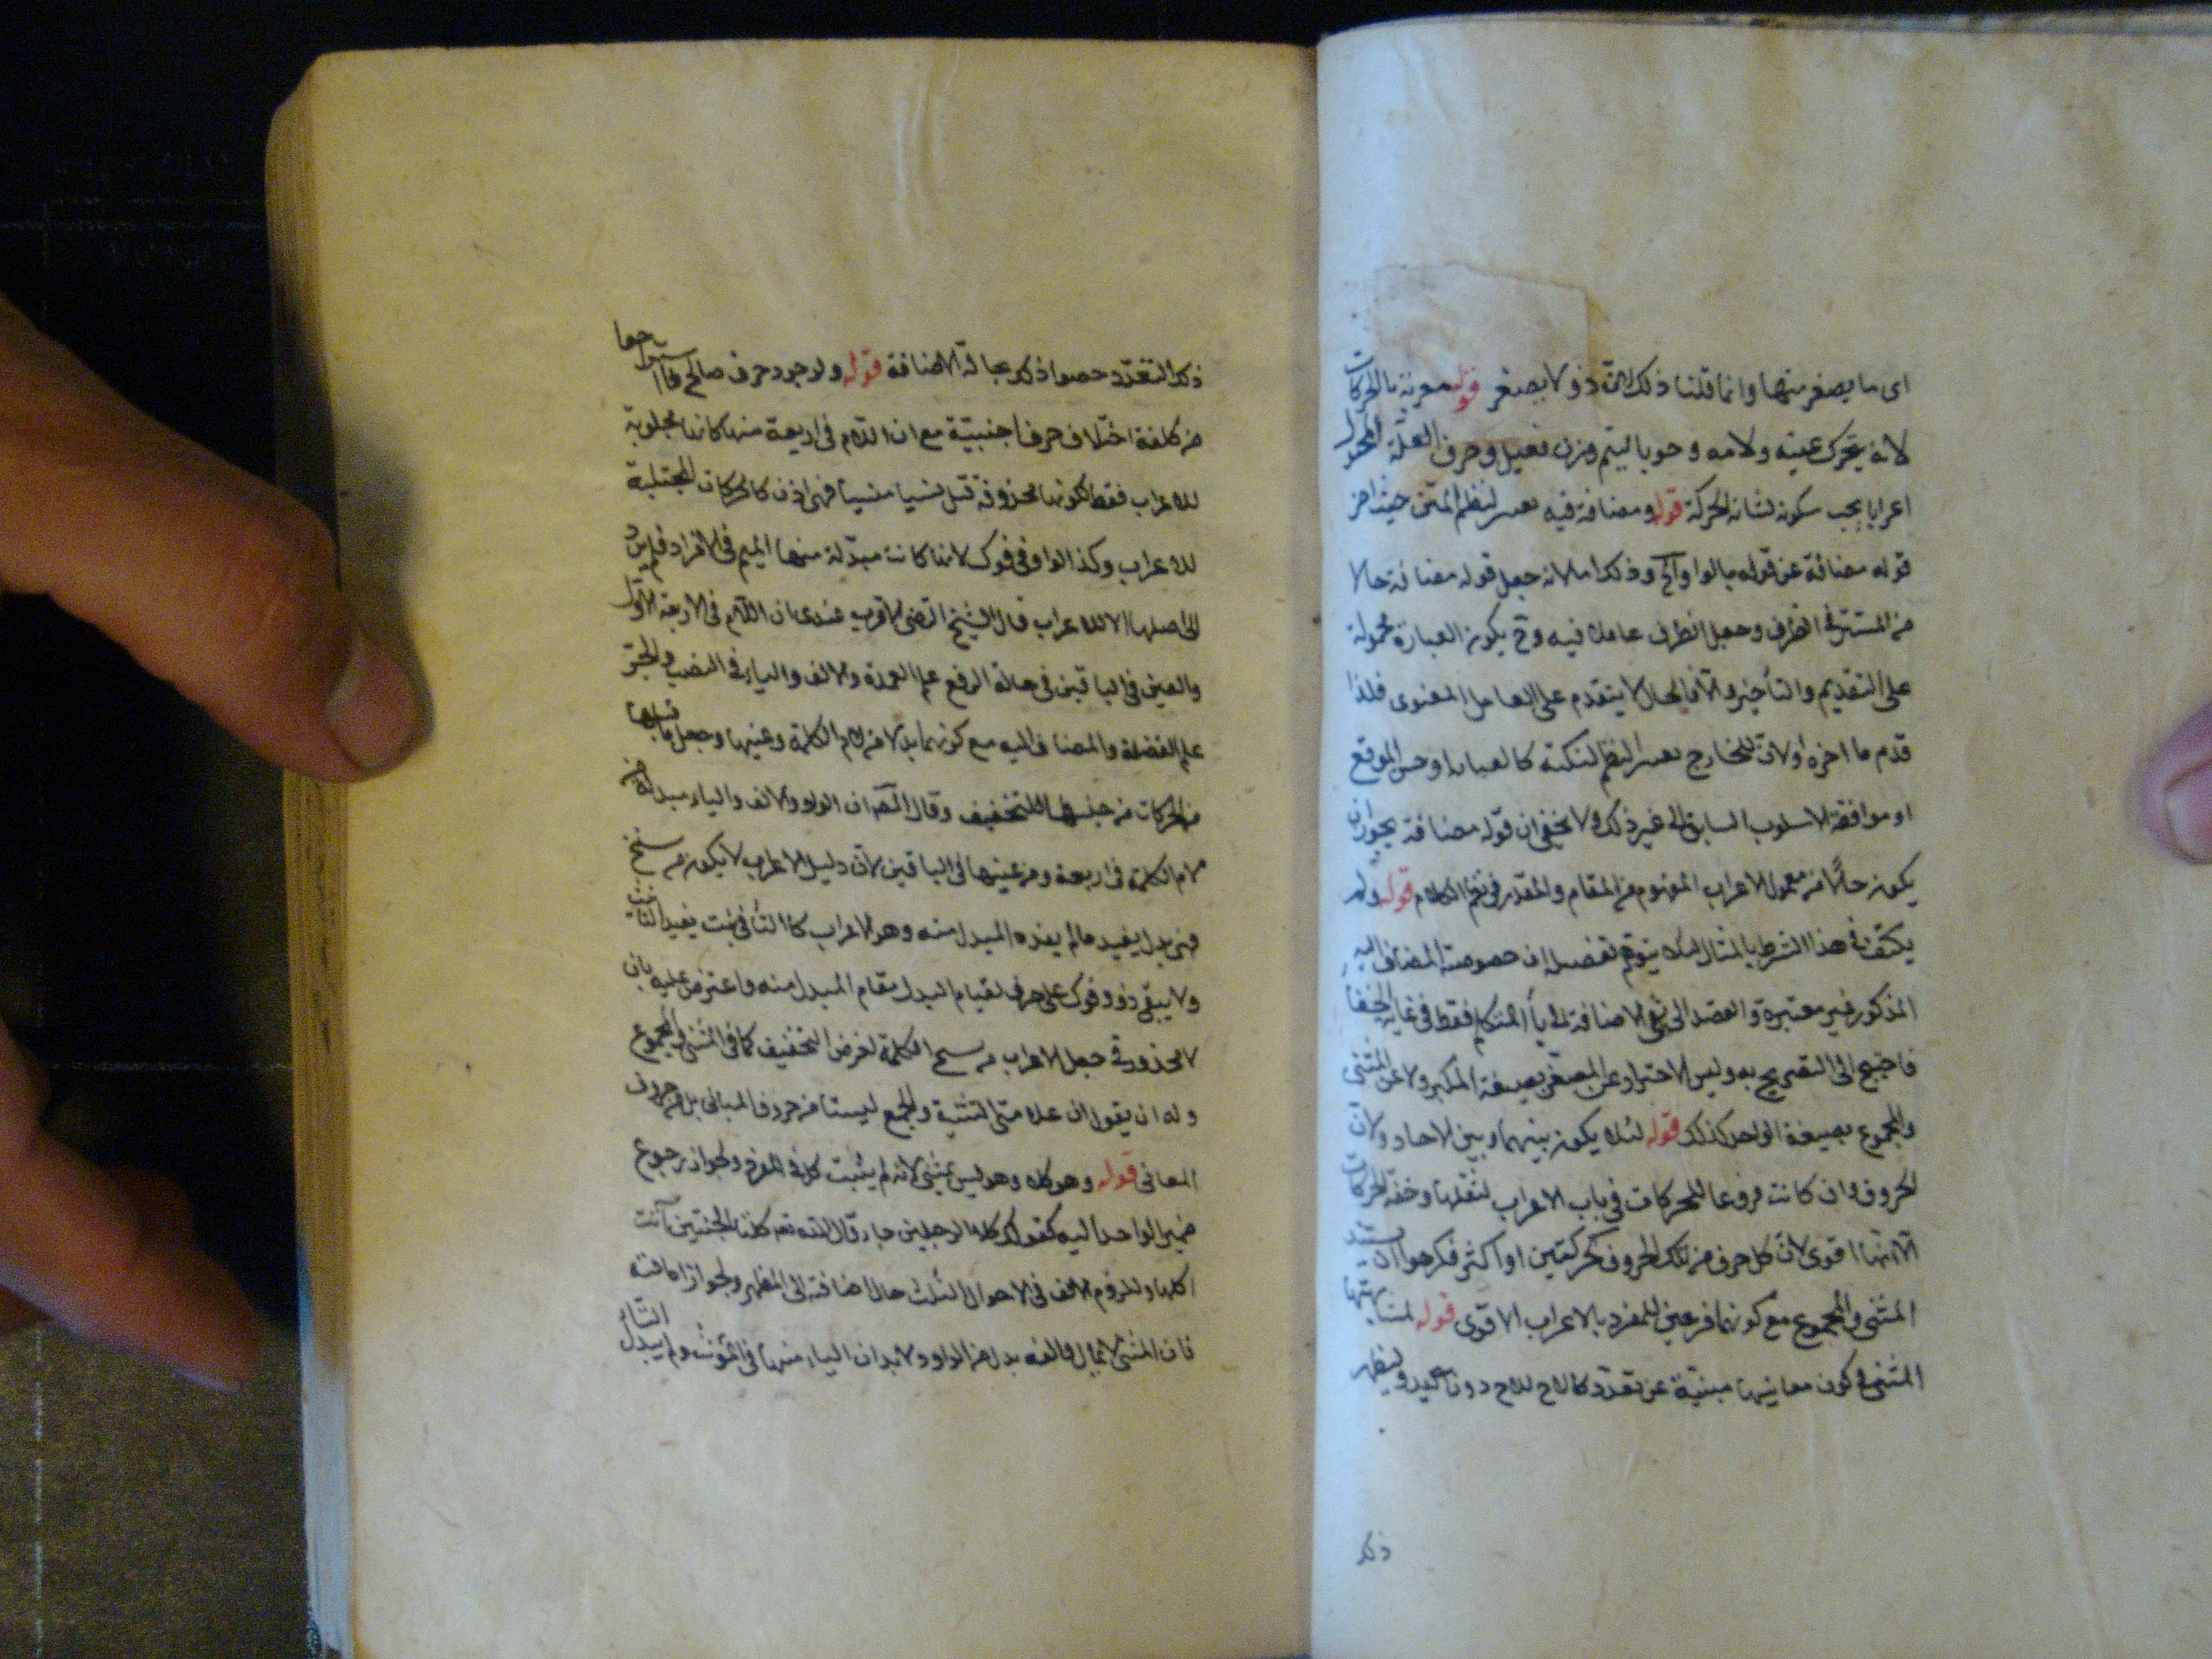 اى ما يصغر منها وانما قلنا ذلك لان ذو لا يصغر قوله معربة بالحركات
لانه يتحرك عينه ولامه وجوبا ليتم وزن فعيل وحرف العلة المتحرك
اعرابا يجب سكونه لشانه الحركة قوله ومضافة فيه تغيير لنظم المتن حيث اخر
قوله مضافة عن قوله بالواو آلخ وذلك اما لانه جعل قوله مضافة حالا
من المستتر فى الظرف وجعل الظرف عاملا فيه وح يكون العبارة محمولة
على التقديم والتأخير والا فالحال لا يتقدم على العامل المعنوى فلذا
قدم ما اخره اولا للشارح تغيير النظم لنكتة كالعبارة او حسن الموقع
او موافقة الاسلوب السابق الى غير ذلك ولا يخفى ان قوله مضافة يجوز ان
يكون حالا من معمول الاعراب المفهوم من المقام والمقدر فى نظم الكلام قوله ولم
يكتف فى هذا الشرط بالمثال لئلا يتوهم ان خصوصية المضاف اليه
المذكور غير معتبرة والقصد الى نفى الاضافة الى يأ المتكلم فقط فى غاية الخفأ
فاحتيج الى التصريح به وليس الاحتراز عن المصغر بصيغة المكبر ولا عن المثنى
والمجموع بصيغة الواحد كذلك قوله لئلا يكون بينهما وبين الاحاد ولان
الحروف وان كانت فروعا للحركات فى باب الاعراب لثقلها وخفة الحركات
الا انها اقوى لان كل حرف من تلك الحروف كحركتين او اكثر فكرهوا ان يستبد
المثنى والمجموع مع كونهما فرعين للمفرد بالاعراب الاقوى قوله لمشابهتها
المثنى فى كون معانيها مبنية عن تعدد كالاخ للاخ دون يد وليظهر
ذلك
ذلك التعدد خصوا ذلك بحالة الاضافة قوله ولوجود حرف صالح فاستراحوا
من كلفة اختلاف حرف اجنبية مع ان اللام فى اربعة منها كانها مجلوبة
للاعراب فقط لكونها محذوفة قبل نسيا منسيا فهى اذن كالحركات المجتلبة
للاعراب وكذا الواو فى فوك لانها كانت مبدلة منها الميم فى الافراد فلم يرد
الى اصلها الا للاعراب قال الشيخ الرضى الاقرب عندى ان اللام فى الاربعة الاول
والعين فى الباقين فى حالة الرفع علم العمدة والالف والياء فى النصب والجر
علم الفضلة والمضاف اليه مع كونهما بدلا من لام الكلمة وعينها وجعل ما قبلها
من الحركات من جنسها للتخفيف وقال المص ان الواو والالف والياء مبدلة من
لام الكلمة فى اربعة ومن عينها فى الباقين لان دليل الاعراب لا يكون من سنخ
فهى بدل يفيد ما لم يفده المبدل منه وهو الاعراب كالتأ فى بنت يفيد التأنيث
ولا يبقى ذو وفوك على حرف لقيام البدل مقام المبدل منه واعترض عليه بان
لا محذور فى جعل الاعراب من سنخ الكلمة لغرض التخفيف كما فى المثنى والمجموع
وله ان يقول ان علامتى التثنية والجمع ليستا من حروف المبانى بل من حروف
المعانى قوله وهو كلا وهو ليس بمثنى لانه لم يثبت كل فى المفرد ولجواز رجوع
ضمير الواحد اليه كقولك كلا الرجلين جاء وقال الله تعم كلتا الجنتين آتت
اكلها وللزوم الالف فى الاحوال الثلث حال اضافته الى المظهر ولجواز امالته
فان المثنى لا يمال والفه بدل من الواو ولا بد ان الياء منها فى المؤنث ولم يبدل التاء